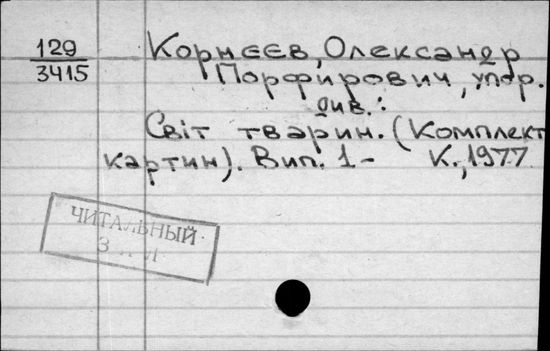 129
3415
Корнєєв, Олександр
Порфирович, упор.
див.:
Світ тварин. (Комплект
картин). Вип. 1- К., 1977
ЧИТАЛЬНЫЙ